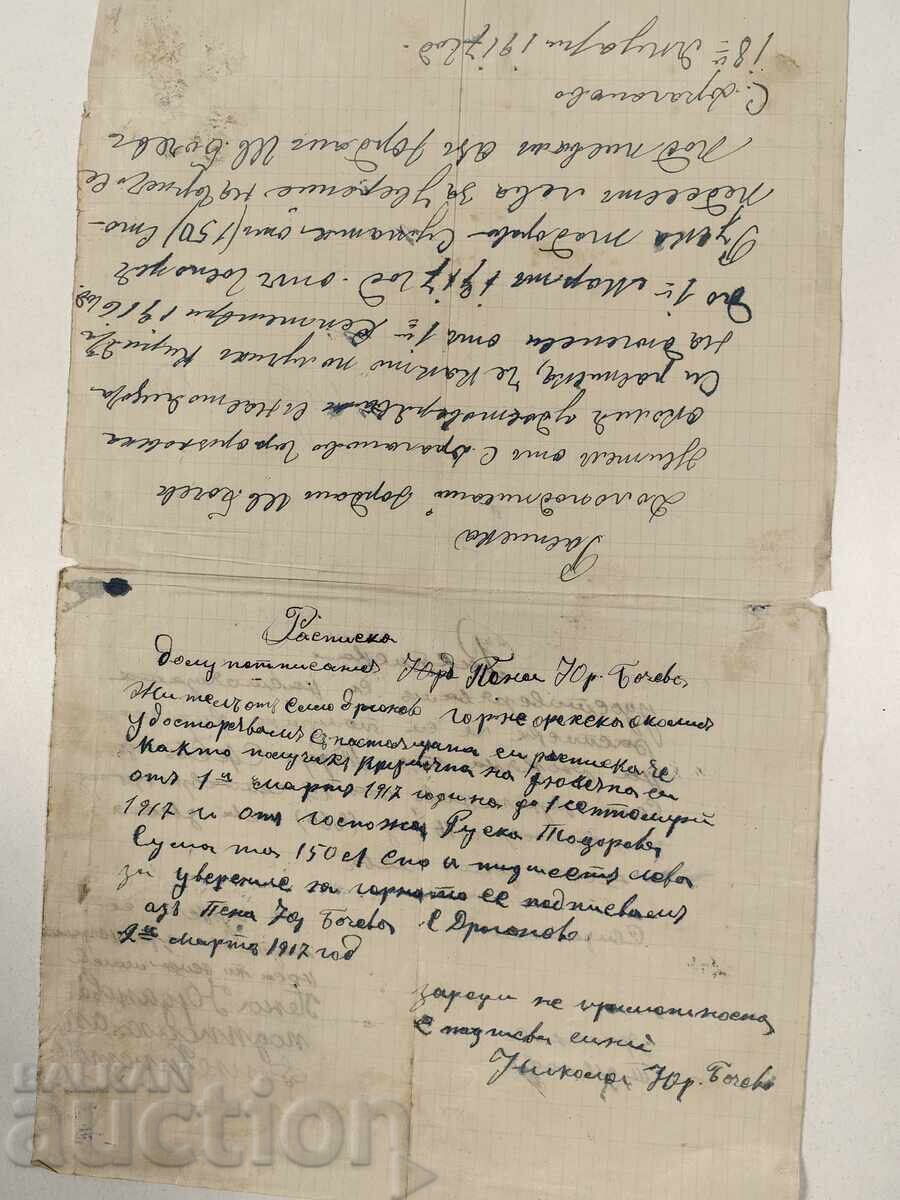 Расписка
Долоподписаний Йордан Ив. Бочев
Жител отъ с. Драганово Горнорѣховска
околия удостоверявам с настоящата
си расписка, че както получих кирията
на дюгеня отъ 1 ий Септемврий 1916 год.
до 1 ий Мартъ 1917 год. отъ Госпожа
Руска Тодорова Сумата отъ (150) Сто
педесетъ лева за уверение на горнето се
подписвамъ азъ Йорданъ Ив. Бочевъ
с. Драганово
18 ий Януари 1917 год.
Расписка
долуподписаная Пена Юр. Бочева
жителъ отъ село Дрганово горне орехска околия
удосторевамъ съ настоящата си расписка че
както получихъ кирията на дюкена си
отъ 1 и мартъ 1917 година до 1 септемврий
1917 г. отъ госпожа Руска Тодорова
Сумата 150 сто и пидисетъ лева
за уверение на горнято се подписвамъ
азъ Пена Юр Бочева с Дрганово
2 и мартъ 1917 год
заради не грамотноста
с подписва синй
Никола Юр. Бочевъ
BALKAN
auction